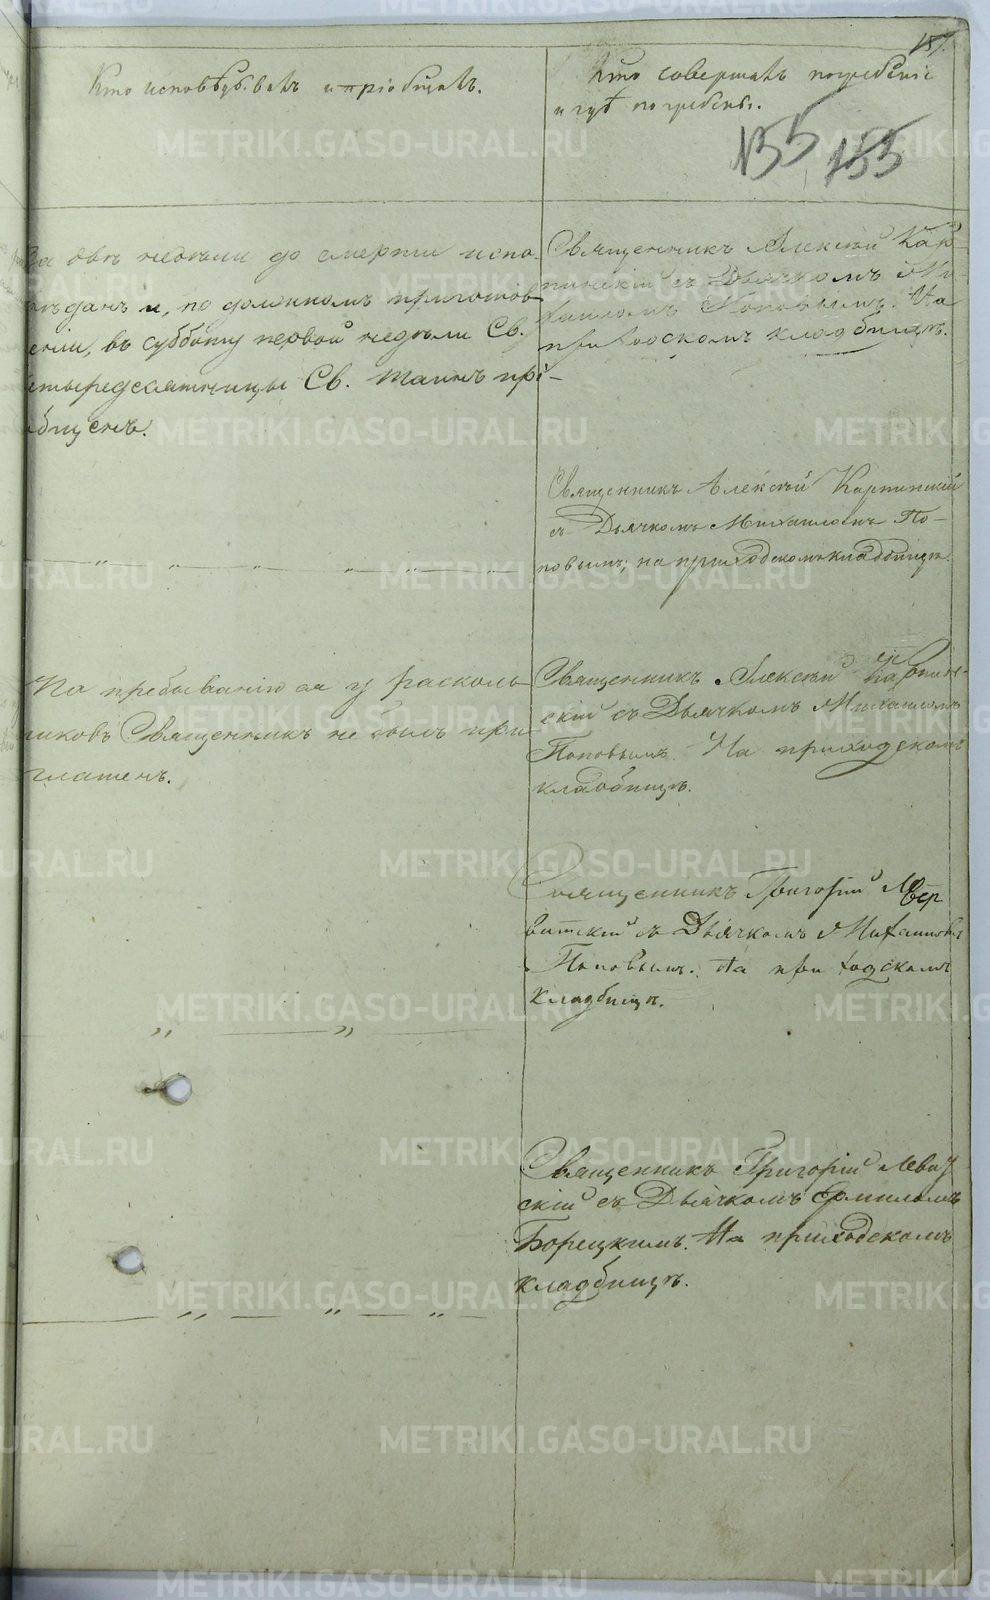 157.
Кто исповѣдывалъ и пріобщалъ.
Кто совершалъ погребеніе
и гдѣ погребены.
155 155
За двѣ недѣли до смерти испо-
вѣданъ и, по должномъ приготов
леніи, въ субботу первой недѣли Св.
етыредесятницы Св. Таинъ прі-
общенъ.
Священникъ Алексѣй Кар-
пинскій съ Дьячкомъ Ми-
хаиломъ Поповымъ. На
приходскомъ кладбищѣ.
Священникъ Алексѣй Карпинскій
съ Дьячкомъ Михаиломъ По-
повымъ; на приходскомъ кладбищѣ.
По пребыванію ея у расколь
никовъ Священникъ не былъ при
глашенъ.
Священникъ Алексѣй Карпин-
скій съ Дьячкомъ Михаиломъ
Поповымъ. На приходскомъ
кладбищѣ.
Священникъ Григорій
съ Дьячкомъ Михаиломъ
Поповымъ. На приходскомъ
кладбищѣ.
Священникъ Григорій Левиц
скій съ Дьячкомъ Ермиломъ
Борецкимъ. На приходскомъ
кладбищѣ.
METRIKI.GASO-URAL.RU